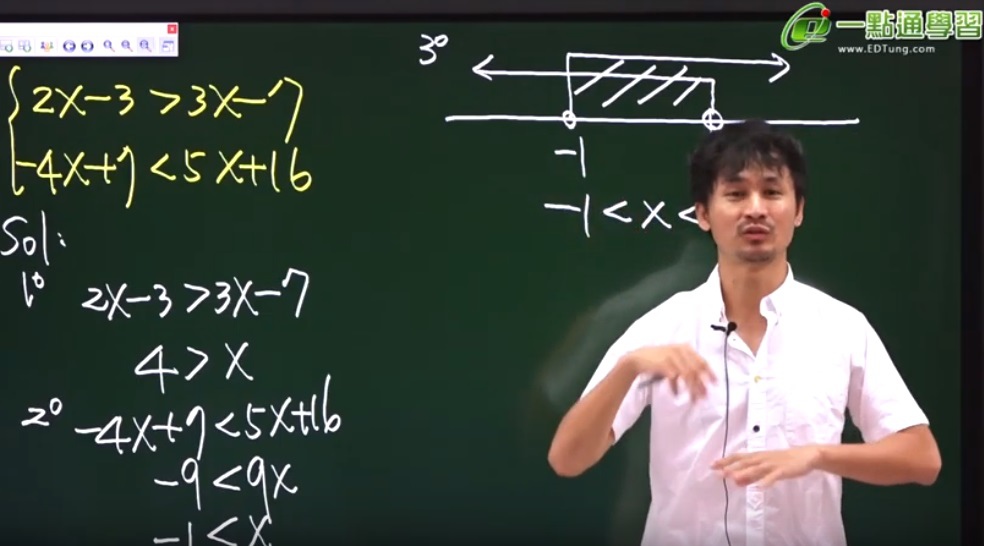 一點通學習
www.EDTung.com
2x-3>3x-7
-4x+7<5x+16
Sol:
1°
2x-3>3x-7
4>x
2° -4x+7<5x+16
-9<9x
-1<x
3°
-1
-1<x<